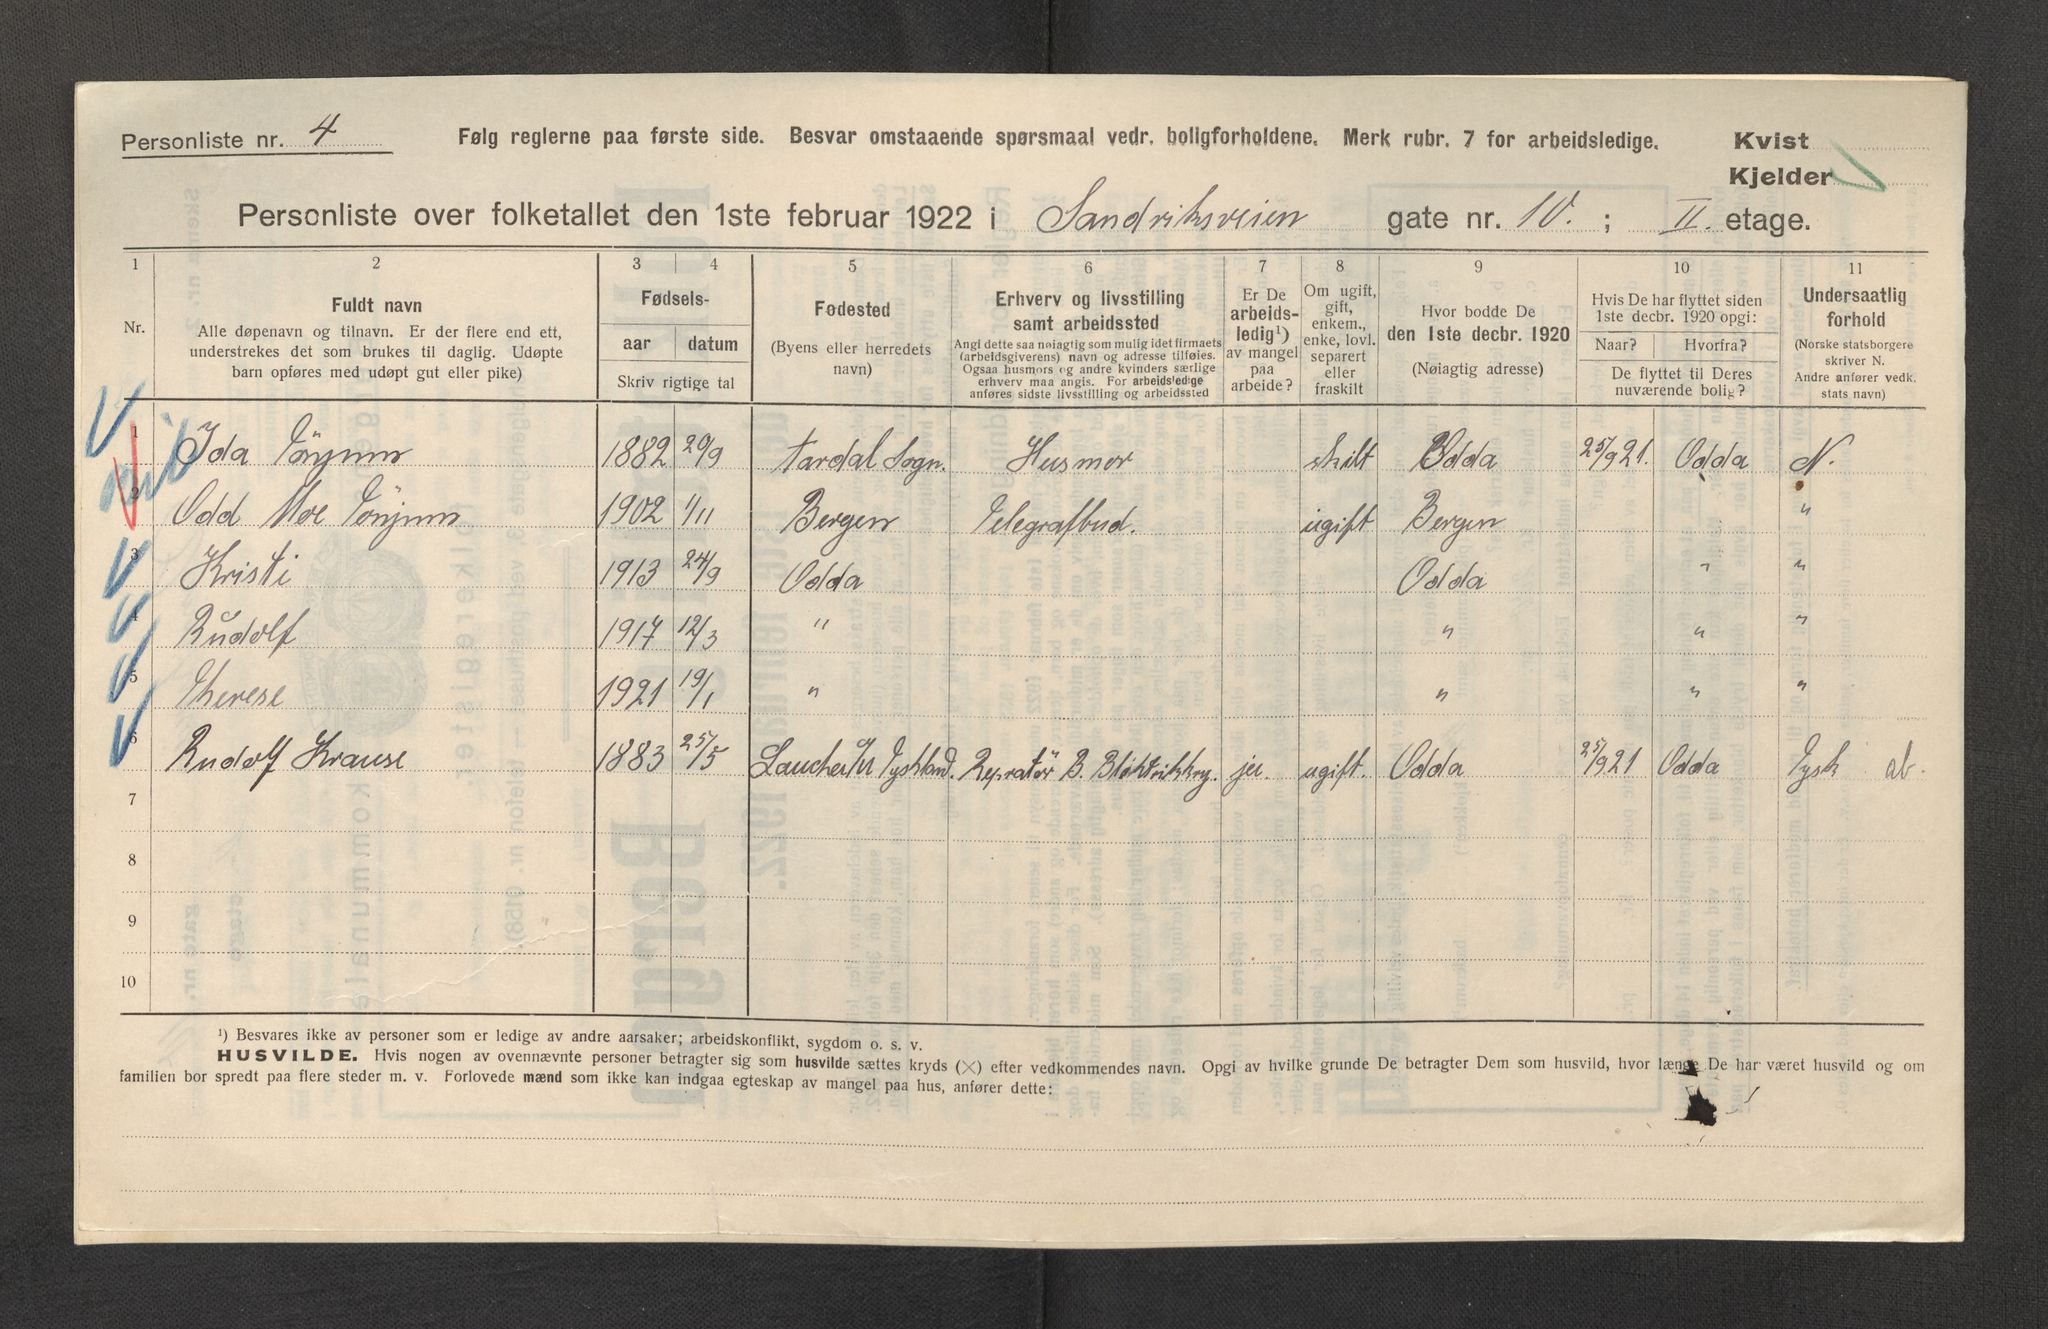 Personliste nr. 4
Følg reglerne paa første side. Besvar omstaaende spørsmaal vedr. boligforholdene. Merk rubr. 7 for arbeidsledige.
Kvist
Kjelder
Personliste over folketallet den 1ste februar 1922 i Sandviksveien gate nr. 10. ; II. etage.
1 2 3 4 5 6 7 8 9 10 11
Nr.
Fuldt navn
Alle døpenavn og tilnavn. Er der flere end ett,
understrekes det som brukes til daglig. Udøpte
barn opføres med udøpt gut eller pike)
Fødsels-
aar datum
Skriv rigtige tal
Fødested
(Byens eller herredets
navn)
Erhverv og livsstilling
samt arbeidssted
Angi dette saa nøiagtig som mulig idet firmaets
(arbeidsgiverens) navn og adresse tilføies.
Ogsaa husmors og andre kvinders særlige
erhverv maa angis. For arbeidsledige
anføres sidste livsstilling og arbeidssted
Er De
arbeids-
ledig¹)
av mangel
paa
arbeide?
Om ugift,
gift,
enkem.,
enke, lovl.
separert
eller
fraskilt
Hvor bodde De
den 1ste decbr. 1920
(Nøiagtig adresse)
Hvis De har flyttet siden
1ste decbr. 1920 opgi:
Naar? Hvorfra?
De flyttet til Deres
nuværende bolig?
Undersaatlig
forhold
(Norske statsborgere
skriver N.
Andre anfører vedk.
stats navn)
1 Ida 1882 20/9 Aardal Sogn. Husmor skilt Odda 25/9 21. Odda N.
2 Odd Moe 1902 1/11 Bergen Telegrafbud. ugift Bergen "
3 Kristi 1913 24/9 Odda Odda " "
4 Rudolf 1917 12/3 " " " "
5 Therese 1921 19/1 " " " "
6 Rudolf Krause 1883 25/5 Tyskland. Repratör B. ja. ugift. Odda 25/9 21 Odda Tysk ab.
7
8
9
10
¹) Besvares ikke av personer som er ledige av andre aarsaker; arbeidskonflikt, sygdom o. s. v.
HUSVILDE. Hvis nogen av ovennævnte personer betragter sig som husvilde sættes kryds (×) efter vedkommendes navn. Opgi av hvilke grunde De betragter Dem som husvild, hvor længe De har været husvild og om
familien bor spredt paa flere steder m. v. Forlovede mænd som ikke kan indgaa egteskap av mangel paa hus, anfører dette: